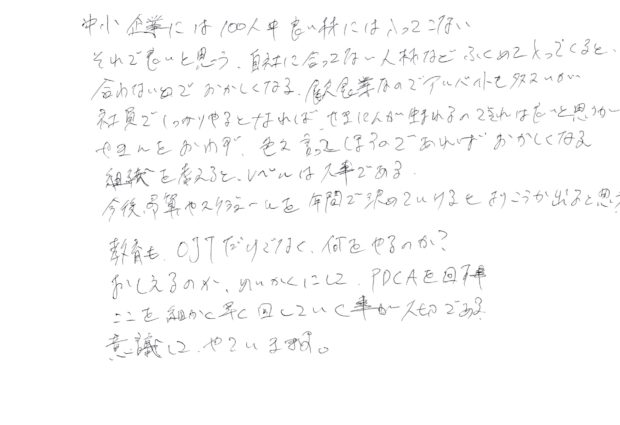 中小企業には100人中良い材には入ってこない
それで良いと思う、自社に合ってない人材などふくめて入ってくると、
合わないのでおかしくなる、飲食業なのでアルバイトも多いが
社員でしっかりやるとなれば、せきに人が生まれるのでそれは良いと思うが
せきにんをおわず、色々言ってしまうのであればおかしくなる
組織を考えると、レベルは大事である。
今後予算やスケジュールを年間で決めていけるとよりこうか出ると思う
教育も、OJTだけでなく、何をやるのか?
おしえるのか、めいかくにして、PDCAを回す事
ここを細かく早く回していく事が大切である。
意識して、やっています。